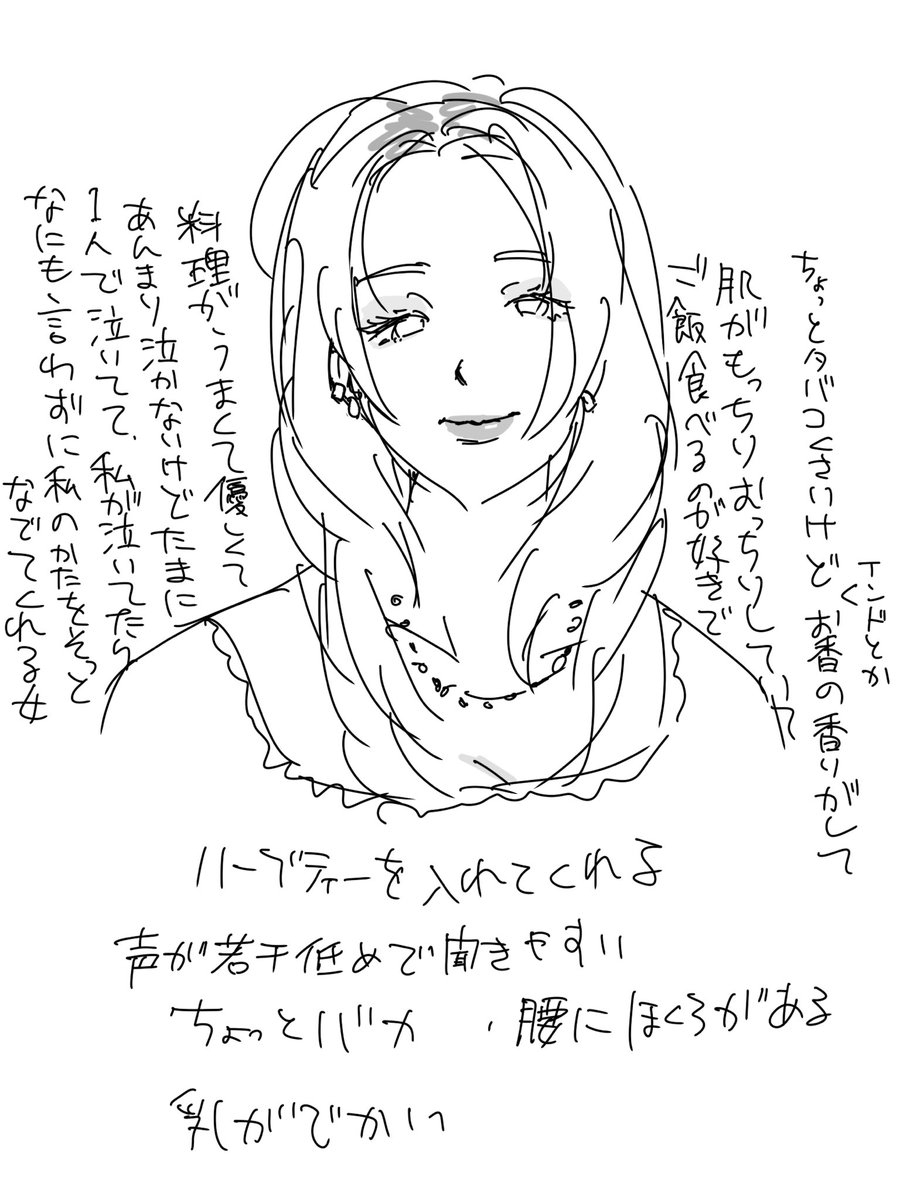 ちょっとタバコくさいけどお香の香りがして
インドとか
肌がもっちりむっちりしていて
ご飯食べるのが好きで
料理がうまくて優しくて
あんまり泣かないけどたまに
1人で泣いてて、私が泣いてたら
なにも言わずに私のかたをそっと
なでてくれる女
ハーブティーを入れてくれる
声が若干低めで聞きやすい
ちょっとバカ ・腰にほくろがある
乳がでかい